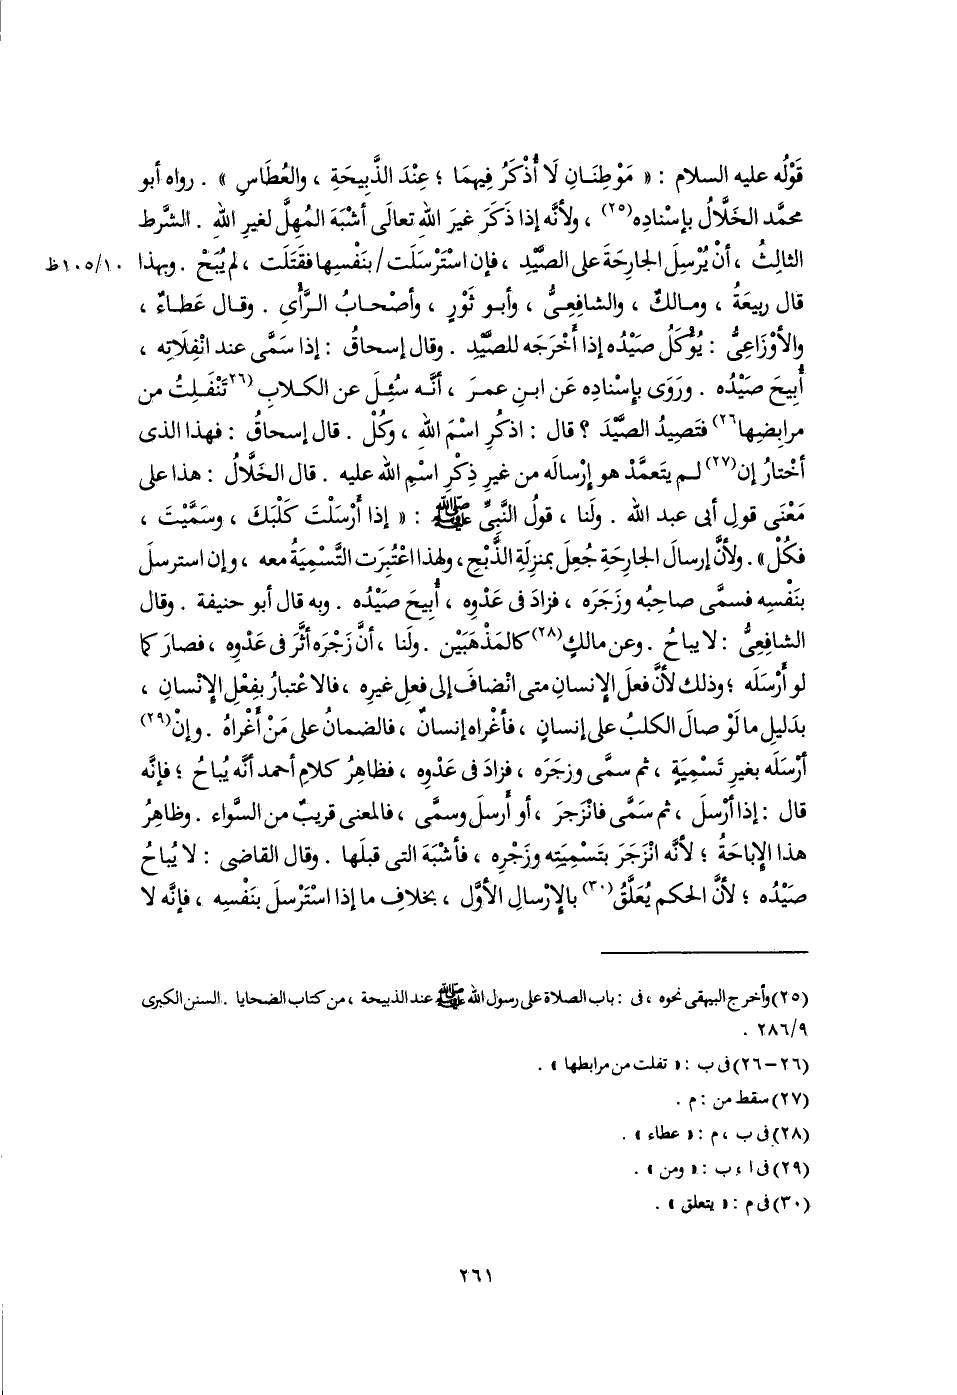 قَوْلُه عليه السلام : « مَوْطِنَـانِ لَا أُذْكَرُ فِيهِمَا ؛ عِنْدَ الذَّبِيحَةِ ، والعُطَاسِ » . رواه أبو
محمد الخَلَّالُ بإسْنادِه(٢٥) ، ولأنَّه إذا ذَكَرَ غيرَ اللهِ تعالَى أشْبَهَ المُهِلَّ لغيرِ اللهِ . الشَّرط
الثالِثُ ، أنْ يُرْسِلَ الجارِحَةَ على الصَّيْدِ ، فإن اسْتَرْسَلَت / بنَفْسِها فقَتَلَت ، لم يُبَحْ . وبهذا ١٠٥/١٠ظ
قال ربيعَةُ ، ومـالكٌ ، والشافِعِىُّ ، وأبـو ثَوْرٍ ، وأصْحـابُ الرَّأْىِ . وقـال عَطـاءٌ ،
والأوْزَاعِىُّ : يُؤْكَلُ صَيْدُه إذا أخْرَجَه للصَّيْدِ . وقال إسحاقُ : إذا سَمَّى عند انْفِلَاتِه ،
أُبِيحَ صَيْدُه . ورَوَى بإسْنادِه عَن ابـنِ عمـرَ ، أنَّـه سُئِـلَ عن الكـلابِ (٢٦تَنْفَـلِتُ من
مرابِضِها٢٦) فتَصِيدُ الصَّيْدَ ؟ قال : اذكُرِ اسْمَ اللهِ ، وكُلْ . قال إسحاقُ : فهذا الذى
أخْتارُ إن(٢٧) لـم يَتَعمَّدْ هو إرْسالَه من غيرِ ذِكْرِ اسْمِ الله عليه . قال الخَلَّالُ : هذا على
مَعْنَى قولِ أبى عبد الله . ولَنا ، قولُ النَّبِىِّ ﷺ : « إذا أرْسَلْتَ كَلْبَكَ ، وسَمَّيْتَ ،
فكُلْ » . ولأنَّ إرسالَ الجارِحَةِ جُعِلَ بمنزِلَةِ الذَّبْحِ ، ولهذا اعْتُبِرَت التَّسْمِيَةُ معه ، وإن استرسلَ
بنَفْسِه فسمَّى صاحِبُه وزَجَرَه ، فزادَ فى عَدْوِه ، أُبِيحَ صَيْدُه . وبه قال أبو حنيفة . وقال
الشافِعِىُّ : لا يباحُ . وعن مالكٍ(٢٨) كالمَذْهَبَيْن . ولَنا ، أنَّ زَجْرَه أثَّرَ فى عَدْوِه ، فصارَ كما
لو أَرْسَلَه ؛ وذلك لأنَّ فعلَ الإنسانِ متى انْضافَ إلى فعلِ غيرِه ، فالاعْتبارُ بفِعْلِ الإنْسانِ ،
بدليلِ ما لَوْ صالَ الكلبُ على إنسانٍ ، فأغْراه إنسانٌ ، فالضمانُ على مَنْ أَغْراهُ . وإنْ(٢٩)
أرْسَلَه بغيرِ تَسْمِيَةٍ ، ثم سمَّى وزجَرَه ، فزادَ فى عَدْوِه ، فظاهِرُ كلامِ أحمد أنَّه يُباحُ ؛ فإنَّه
قال : إذا أرْسلَ ، ثم سَمَّى فانْزَجرَ ، أو أَرسلَ وسمَّى ، فالمعنى قريبٌ من السَّواء . وظاهِرُ
هذا الإباحَةُ ؛ لأنَّه انْزَجَرَ بتَسْمِيَتِه وزَجْرِه ، فأشْبَهَ التى قبلَها . وقال القاضى : لا يُباحُ
صَيْدُه ؛ لأنَّ الحكم يُعَلَّقُ(٣٠) بالإرْسالِ الأوَّلِ ، بخلافِ ما إذا اسْتَرْسلَ بنَفْسِه ، فإنَّه لا
(٢٥) وأخرج البيهقى نحوه ، فى : باب الصلاة على رسول الله ﷺ عند الذبيحة ، من كتاب الضحايا . السنن الكبرى
٢٨٦/٩ .
(٢٦-٢٦) فى ب : « تفلت من مرابطها » .
(٢٧) سقط من : م .
(٢٨) فى ب ، م : « عطاء » .
(٢٩) فى ا ، ب : « ومن » .
(٣٠) فى م : « يتعلق » .
٢٦١